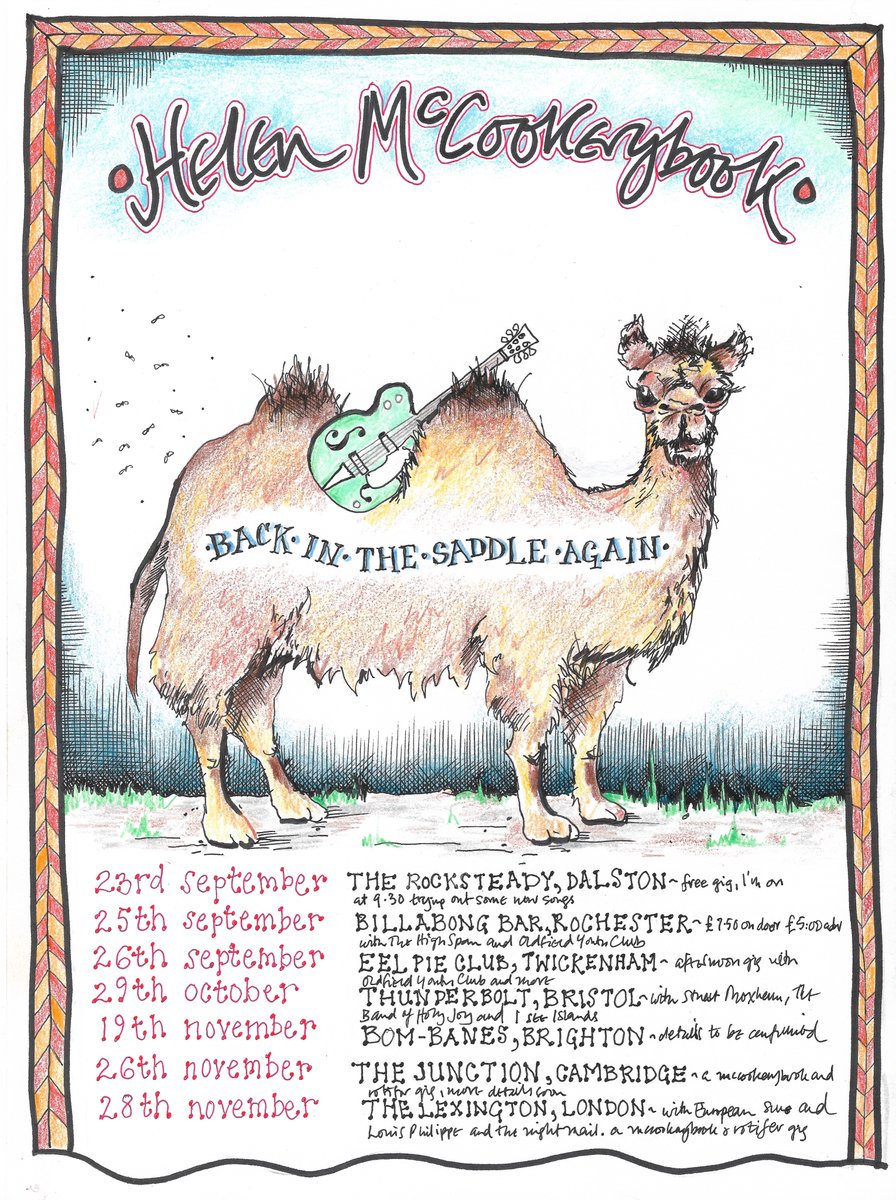 Helen McCookerybook
BACK·IN·THE·SADDLE·AGAIN
23rd september THE ROCKSTEADY, DALSTON ~ free gig, I'm on
at 9.30 trying out some new songs
25th september BILLABONG BAR, ROCHESTER ~ £7.50 on door £5.00 adv
with The High Span and Oldfield Youth Club
26th september EEL PIE CLUB, TWICKENHAM ~ afternoon gig with
Oldfield Youth Club and more
29th october THUNDERBOLT, BRISTOL ~ with Stuart Moxham, The
Band of Holy Joy and I See Islands
19th november BOM-BANES, BRIGHTON ~ details to be confirmed
26th november THE JUNCTION, CAMBRIDGE ~ a mccookerybook and
rotifer gig, more details soon
28th november THE LEXINGTON, LONDON ~ with European Sun and
Louis Philippe and the night mail. a mccookerybook & rotifer gig